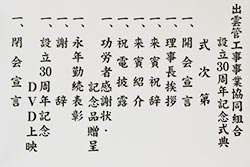 出雲管工事業協同組合
設立30周年記念式典
式次第
一、開会宣言
一、理事長挨拶
一、来賓祝辞
一、来賓紹介
一、祝電披露
一、功労者感謝状・
記念品贈呈
一、永年勤続表彰
一、謝辞
一、設立30周年記念
DVD上映
一、閉会宣言